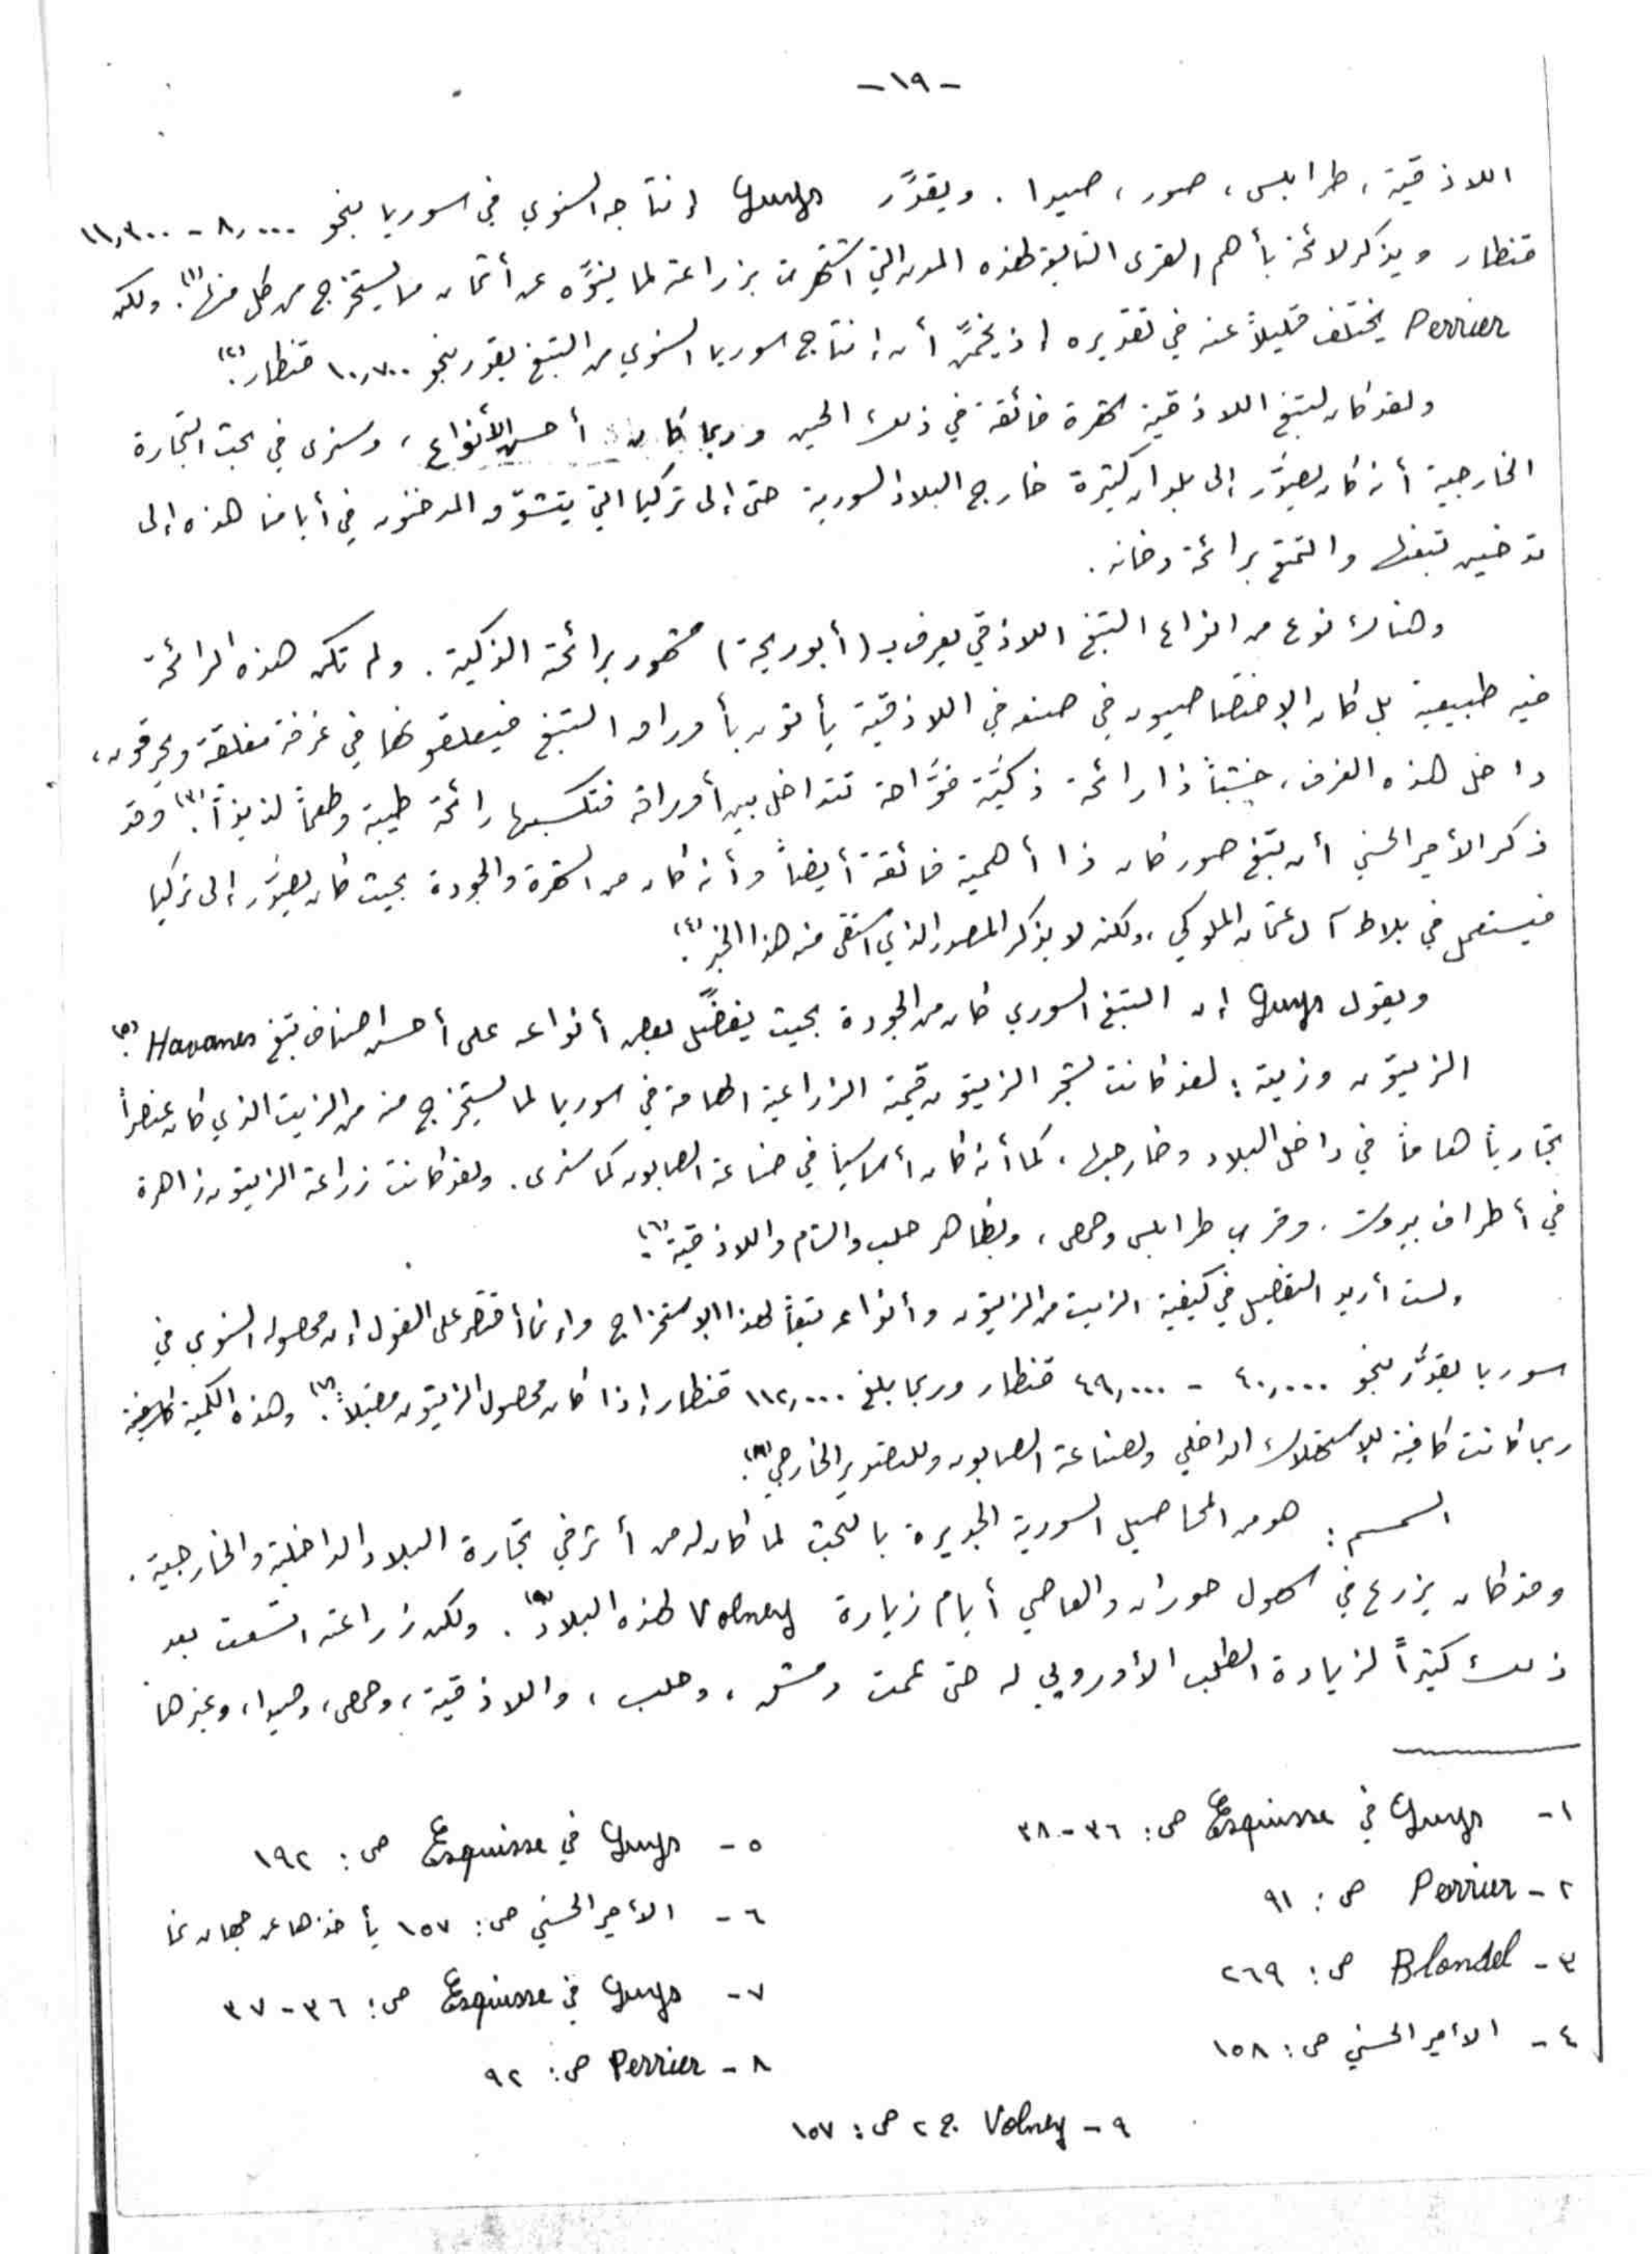 -١٩-
اللاذقية، طرابلس، صور، صيدا. ويقدَّر Guys إنتاجه السنوي في سوريا بنحو ٨,٠٠٠ - ١١,٣٠٠
قنطار ويذكر لائحة بأهم القرى التابعة لهذه المدن التي اشتهرت بزراعته لما ينوَّه عن أثمان ما يستخرج من كل منها(١). ولكن
Perrier يختلف قليلاً عنه في تقديره إذ يخمَّن أن إنتاج سوريا السنوي من التبغ يقدر بنحو ١٠,٧٠٠ قنطار(٢).
ولقد كان لتبغ اللاذقية شهرة فائقة في ذلك الحين وربما كان أحسن الأنواع، وسنرى في بحث التجارة
الخارجية أنه كان يصدَّر إلى بلدان كثيرة خارج البلاد السورية حتى إلى تركيا التي يتشوّق المدخنون في أيامنا هذه إلى
تدخين تبغها والتمتع برائحة دخانه.
وهناك نوع من انواع التبغ اللاذقي يعرف بـ (أبوريحة) مشهور برائحته الذكية. ولم تكن هذه الرائحة
فيه طبيعية بل كان الإختصاصيون في صنعه في اللاذقية يأتون بأوراق التبغ فيعلقونها في غرفة مغلقة ويحرقون،
داخل هذه الغرف، خشباً ذا رائحة ذكيَّة فوَّاحة تتداخل بين أوراقه فتكسبها رائحة طيبة وطعماً لذيذاً(٣). وقد
ذكر الأمير الحسني أن تبغ صور كان ذا أهمية فائقة أيضاً وأنه كان من الشهرة والجودة بحيث كان يصدَّر إلى تركيا
فيستعمل في بلاط آل عثمان الملوكي، ولكنه لا يذكر المصدر الذي استقى منه هذا الخبر(٤).
ويقول Guys إن التبغ السوري كان من الجودة بحيث يفضَّل بعض أنواعه على أحسن اصناف تبغ Havanes(٥).
الزيتون وزيته: لقد كانت لشجر الزيتون قيمته الزراعية الهامة في سوريا لما يستخرج منه من الزيت الذي كان عنصراً
تجارياً هاماً في داخل البلاد وخارجها، كما أنه كان أساسياً في صناعة الصابون كما سنرى. ولقد كانت زراعة الزيتون زاهرة
في أطراف بيروت. وقرب طرابلس وحمص، وبظاهر حلب والشام واللاذقية(٦).
ولست أريد التفصيل في كيفية الزيت من الزيتون وأنواعه تبعاً لهذا الإستخراج وإنما أقتصر على القول إن محصوله السنوي في
سوريا يقدَّر بنحو ٤٠,٠٠٠ - ٤٩,٠٠٠ قنطار وربما بلغ ١١٢,٠٠٠ قنطار إذا كان محصول الزيتون مقبلاً(٧). وهذه الكمية
ربما كانت كافية للإستهلاك الداخلي ولصناعة الصابون وللتصدير الخارجي(٨).
السمسم: هو من المحاصيل السورية الجديرة بالبحث لما كان له من أثر في تجارة البلاد الداخلية والخارجية.
وقد كان يزرع في سهول حوران والعاصي أيام زيارة Volney لهذه البلاد(٩). ولكن زراعته اتسعت بعد
ذلك كثيراً لزيادة الطلب الأوروبي له حتى عمت دمشق، وحلب، واللاذقية، وحمص، وصيدا، وغيرها
١- Guys في Esquisse ص: ٣٦-٣٨
٢- Perrier ص: ٩١
٣- Blondel ص: ٢٦٩
٤- الأمير الحسني ص: ١٥٨
٥- Guys في Esquisse ص: ١٩٢
٦- الأمير الحسني ص: ١٥٧ يأخذها عن جهان نما
٧- Guys في Esquisse ص: ٣٦-٣٧
٨- Perrier ص: ٩٢
٩- Volney ج ٢ ص: ١٥٧